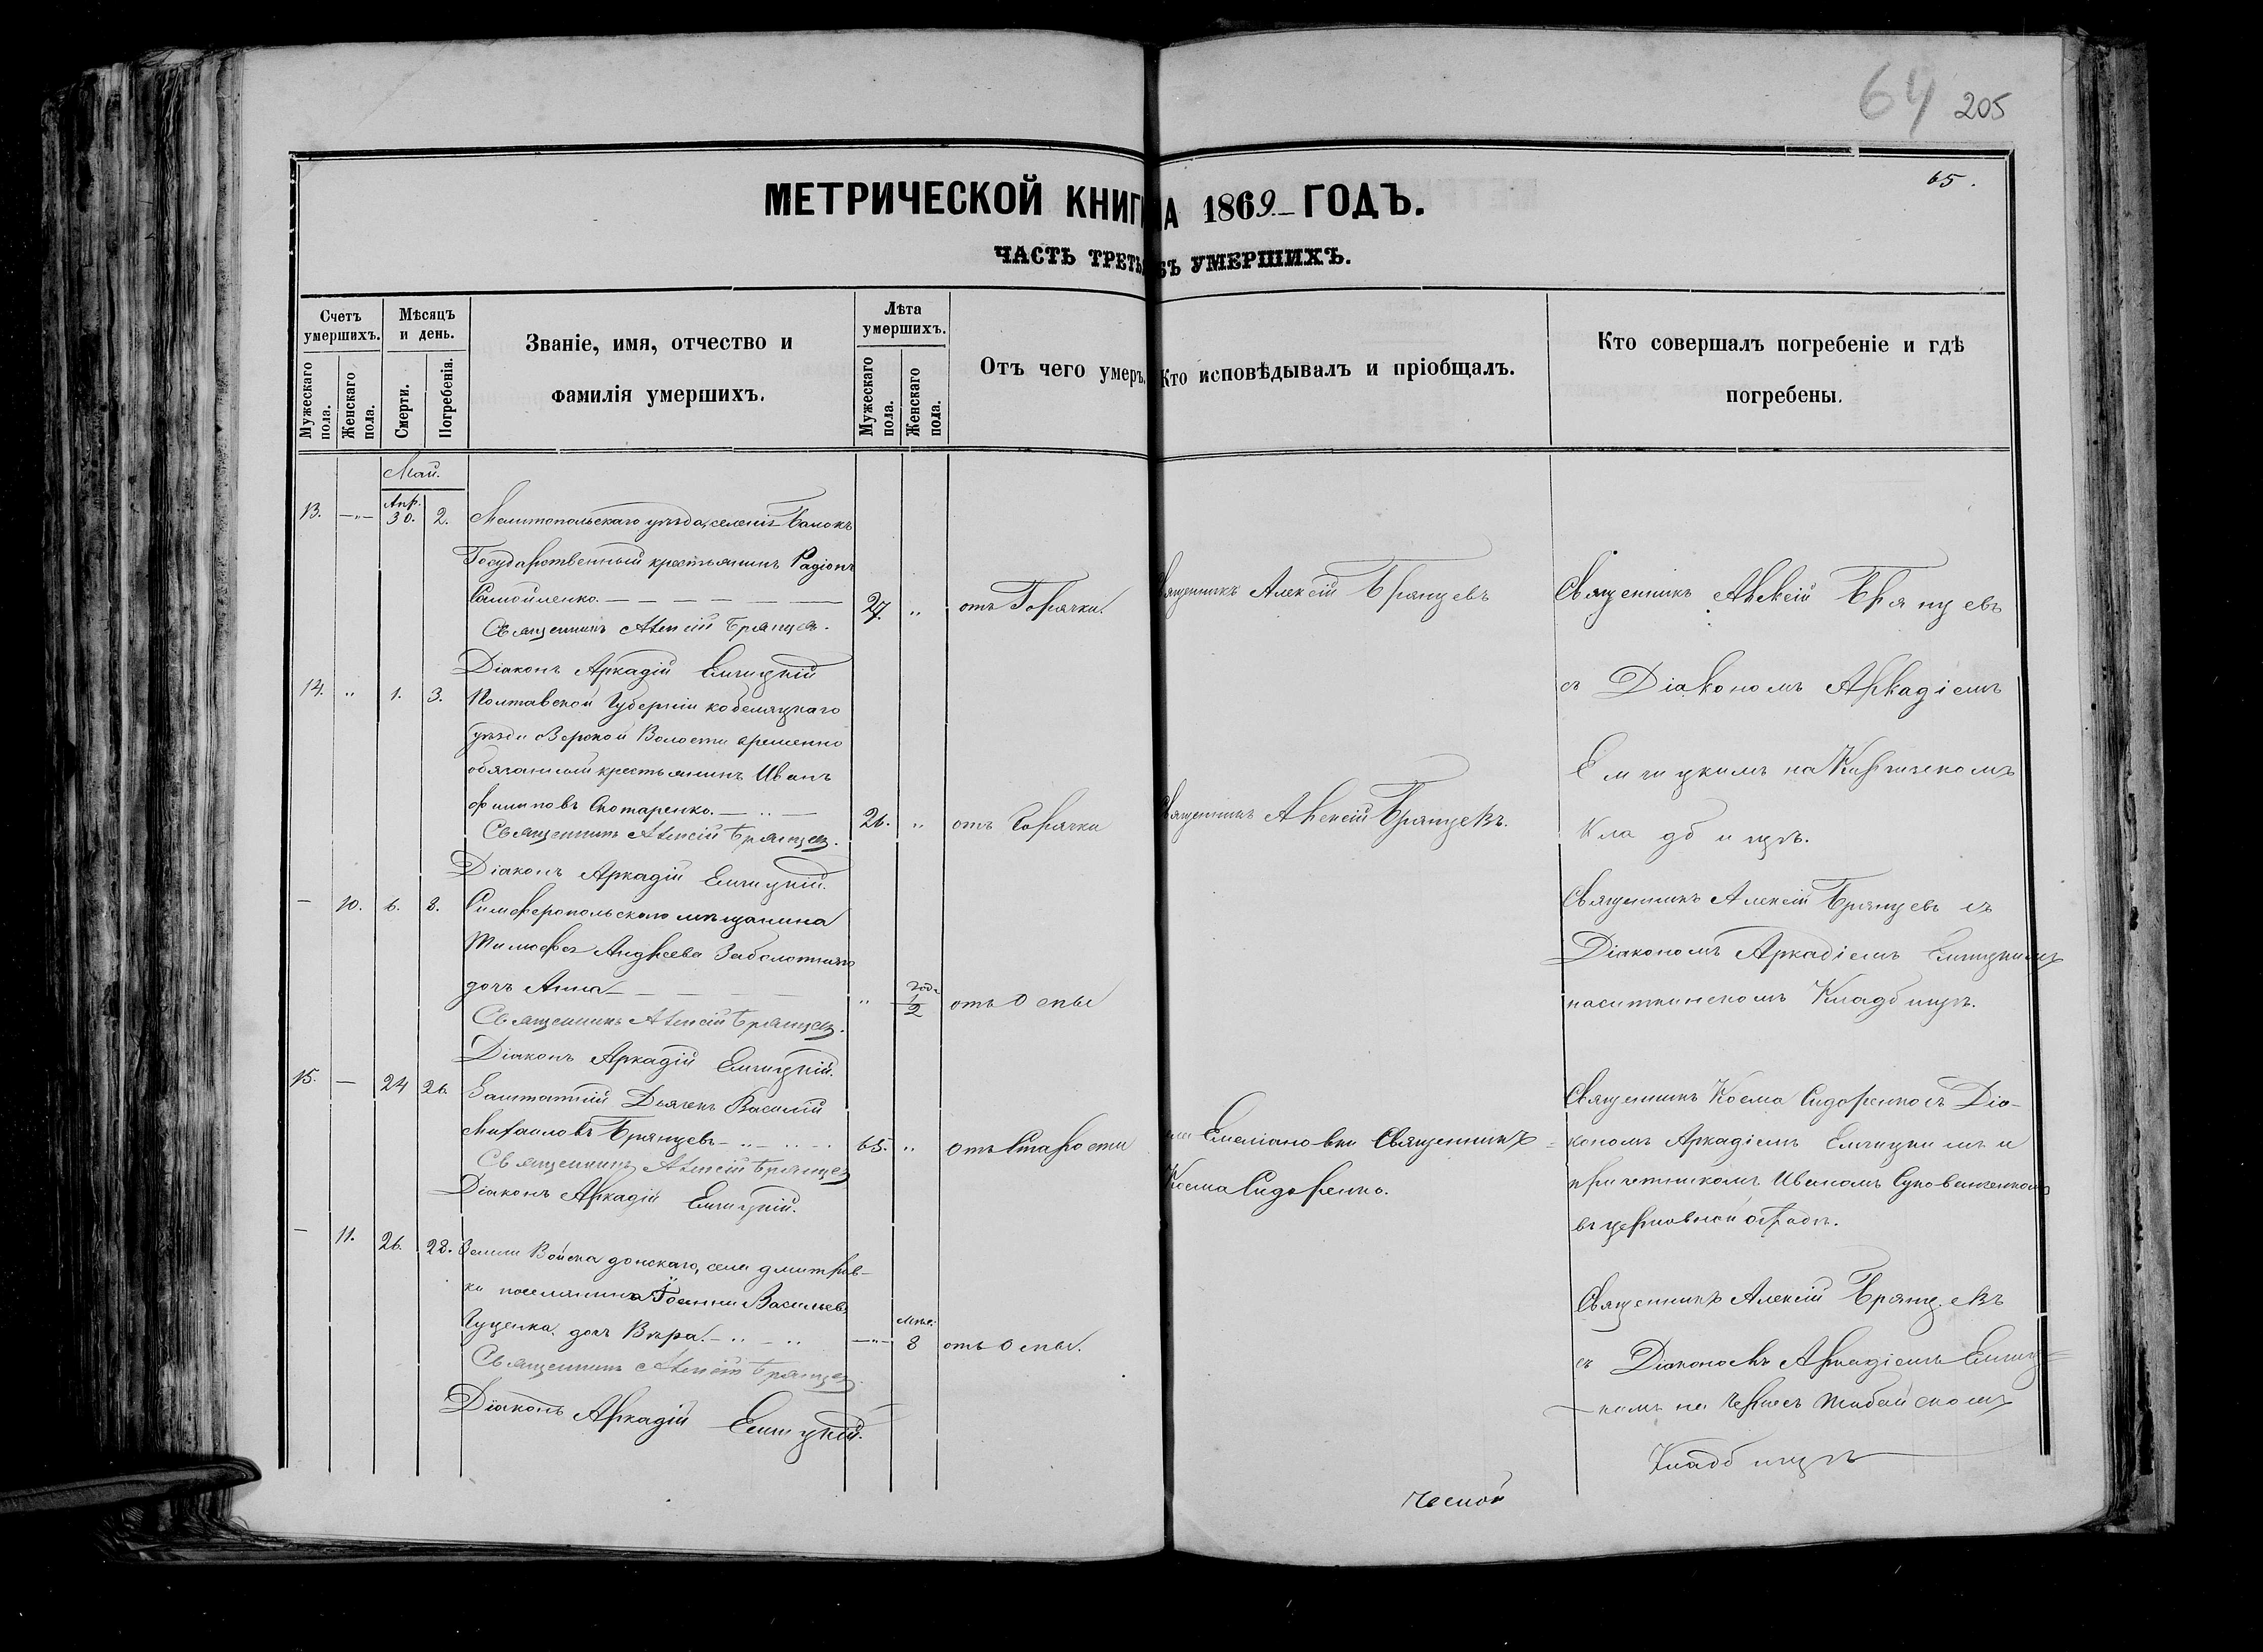 64 205
65.
МЕТРИЧЕСКОЙ КНИГИ НА 1869 ГОДЪ.
ЧАСТЬ ТРЕТЬЯ ОБЪ УМЕРШИХЪ.
Счетъ умершихъ.
Мужескаго пола.
Женскаго пола.
Мѣсяцъ и день.
Смерти.
Погребенія.
Званіе, имя, отчество и
фамилія умершихъ.
Лѣта умершихъ.
Мужескаго пола.
Женскаго пола.
Отъ чего умеръ.
Кто исповѣдывалъ и пріобщалъ.
Кто совершалъ погребеніе и гдѣ
погребены.
Май.
13. Апр. 30. 2. Мелитопольскаго уѣзда, селенія Балокъ
Государственный крестьянинъ Радіонъ
Самойленко.
27. отъ Горячки.
Священникъ Алексій Брянцевъ
Священникъ Алексій Брянцевъ
съ Діакономъ Аркадіемъ
Емчицкимъ на
Кладбищѣ.
Священникъ Алексій Брянцевъ.
Діаконъ Аркадій Емчицкій
14. 1. 3. Полтавской Губерніи кобеляцкаго
уѣзда Волости временно
обязанный крестьянинъ Иванъ
Филиповъ Скотаренко.
26. отъ Горячки
Священникъ Алексій Брянцевъ.
Священникъ Алексій Брянцевъ.
Діаконъ Аркадій Емчицкій.
10. 6. 8. Симферопольскаго мѣщанина
Тимофея Андреева Заболотнаго
дочь Анна
года 1/2 отъ Оспы
Священникъ Алексій Брянцевъ съ
Діакономъ Аркадіемъ Емчицкимъ
Кладбищѣ.
Священникъ Алексій Брянцевъ.
Діаконъ Аркадій Емчицкій.
15. 24 26. Заштатный Дьячекъ Василій
Михаиловъ Брянцевъ
65. отъ Старости
Емельяновки Священникъ
Косма Сидоренко.
Священникъ Косма Сидоренко съ Діа-
кономъ Аркадіемъ Емчицкимъ и
причетникомъ Иваномъ
въ церковной оградѣ.
Священникъ Алексій Брянцевъ
Діаконъ Аркадій Емчицкій.
11. 26. 28. Земли Войска донскаго, села дмитров-
ки поселянина Іоанна Васильева
Гуценка дочь Вѣра.
мѣс. 8 отъ Оспы.
Священникъ Алексій Брянцевъ
съ Діакономъ Аркадіемъ Емчиц-
кимъ на
Кладбищѣ
Священникъ Алексій Брянцевъ.
Діаконъ Аркадій Емчицкій.